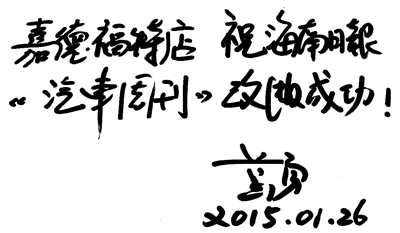 嘉德福特店 祝海南日報
“汽車周刊”改版成功！
2015.01.26